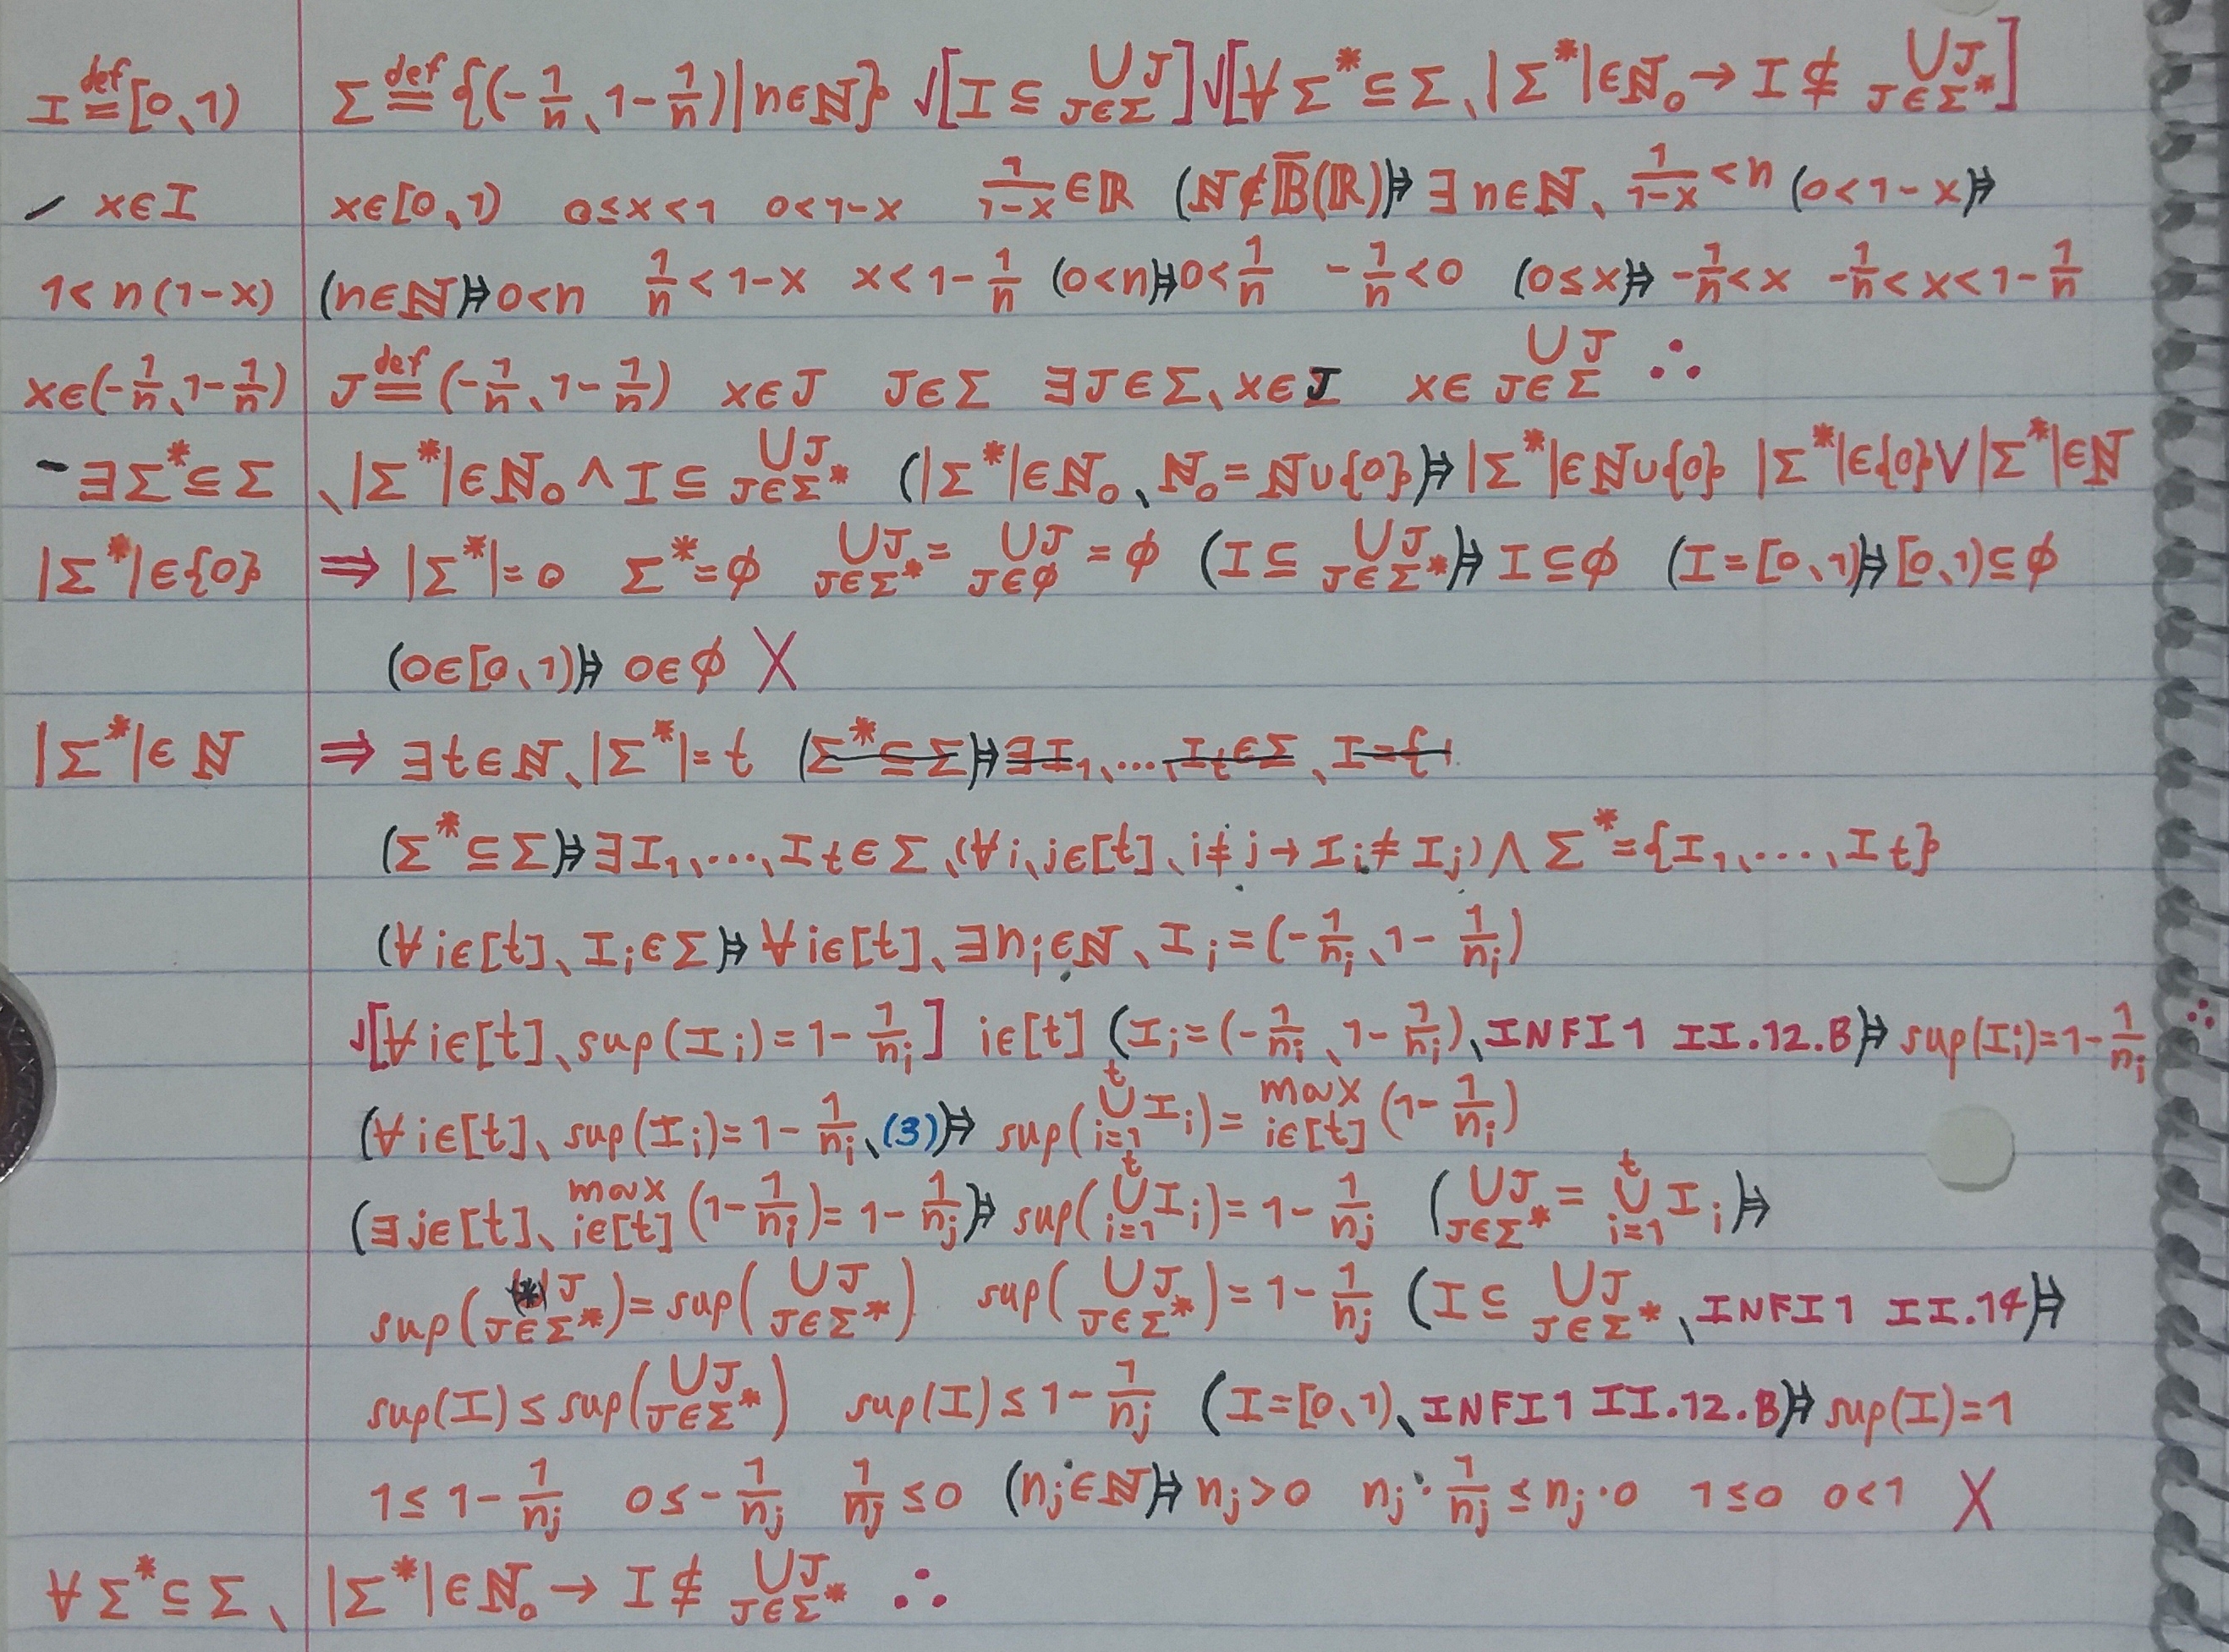 I ≝ [0、1) Σ ≝ {(-1/n、1-1/n)|n∈ℕ} √[I ⊆ ⋃_{J∈Σ} J] √[∀Σ*⊆Σ、|Σ*|∈ℕ₀ → I ⊈ ⋃_{J∈Σ*} J]
- x∈I x∈[0、1) 0≤x<1 0<1-x 1/(1-x)∈ℝ (ℕ∉B̅(ℝ))⊧> ∃n∈ℕ、1/(1-x)<n (0<1-x)⊧>
1<n(1-x) (n∈ℕ)⊧> 0<n 1/n<1-x x<1-1/n (0<n)⊧> 0<1/n -1/n<0 (0≤x)⊧> -1/n<x -1/n<x<1-1/n
x∈(-1/n、1-1/n) J ≝ (-1/n、1-1/n) x∈J J∈Σ ∃J∈Σ、x∈J x∈ ⋃_{J∈Σ} J ∴
- ∃Σ*⊆Σ、|Σ*|∈ℕ₀ ∧ I ⊆ ⋃_{J∈Σ*} J (|Σ*|∈ℕ₀、ℕ₀=ℕ∪{0})⊧> |Σ*|∈ℕ∪{0} |Σ*|∈{0}∨|Σ*|∈ℕ
|Σ*|∈{0} ⇒ |Σ*|=0 Σ*=φ ⋃_{J∈Σ*} J = ⋃_{J∈φ} J = φ (I ⊆ ⋃_{J∈Σ*} J)⊧> I⊆φ (I=[0、1))⊧> [0、1)⊆φ
(0∈[0、1))⊧> 0∈φ X
|Σ*|∈ℕ ⇒ ∃t∈ℕ、|Σ*|=t (Σ*⊆Σ)⊧> ∃I₁、...、I_t∈Σ、I={
(Σ*⊆Σ)⊧> ∃I₁、...、I_t∈Σ、(∀i、j∈[t]、i≠j→I_i≠I_j)∧Σ*={I₁、...、I_t}
(∀i∈[t]、I_i∈Σ)⊧> ∀i∈[t]、∃n_i∈ℕ、I_i=(-1/n_i、1-1/n_i)
√[∀i∈[t]、sup(I_i)=1-1/n_i] i∈[t] (I_i=(-1/n_i、1-1/n_i)、INFI1 II.12.B)⊧> sup(I_i)=1-1/n_i ∴
(∀i∈[t]、sup(I_i)=1-1/n_i、(3))⊧> sup(⋃_{i=1}^{t} I_i)= max_{i∈[t]} (1-1/n_i)
(∃j∈[t]、max_{i∈[t]} (1-1/n_i)=1-1/n_j)⊧> sup(⋃_{i=1}^{t} I_i)=1-1/n_j (⋃_{J∈Σ*} J = ⋃_{i=1}^{t} I_i)⊧>
sup(⋃_{J∈Σ*} J)=sup(⋃_{J∈Σ*} J) sup(⋃_{J∈Σ*} J)=1-1/n_j (I ⊆ ⋃_{J∈Σ*} J、INFI1 II.14)⊧>
sup(I)≤sup(⋃_{J∈Σ*} J) sup(I)≤1-1/n_j (I=[0、1)、INFI1 II.12.B)⊧> sup(I)=1
1≤1-1/n_j 0≤-1/n_j 1/n_j≤0 (n_j∈ℕ)⊧> n_j>0 n_j·1/n_j≤n_j·0 1≤0 0<1 X
∀Σ*⊆Σ、|Σ*|∈ℕ₀ → I ⊈ ⋃_{J∈Σ*} J ∴